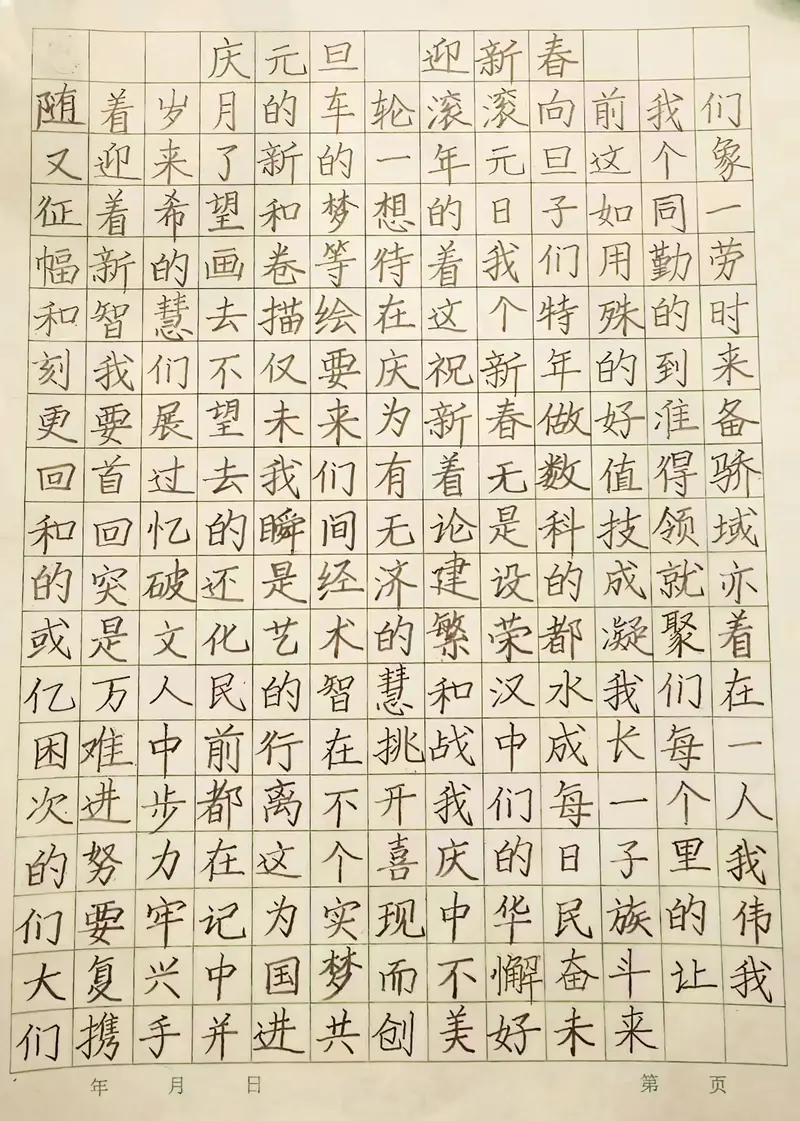 庆元旦 迎新春
随着岁月的车轮滚滚向前我们
又迎来了新的一年元旦这个象
征着希望和梦想的日子如同一
幅新的画卷等待着我们用勤劳
和智慧去描绘在这个特殊的时
刻我们不仅要庆祝新年的到来
更要展望未来为新春做好准备
回首过去我们有着无数值得骄
和回忆的瞬间无论是科技领域
的突破还是经济建设的成就亦
或是文化艺术的繁荣都凝聚着
亿万人民的智慧和汉水我们在
困难中前行在挑战中成长每一
次进步都离不开我们每一个人
的努力在这个喜庆的日子里我
们要牢记为实现中华民族的伟
大复兴中国梦而不懈奋斗让我
们携手并进共创美好未来
年 月 日 第 页